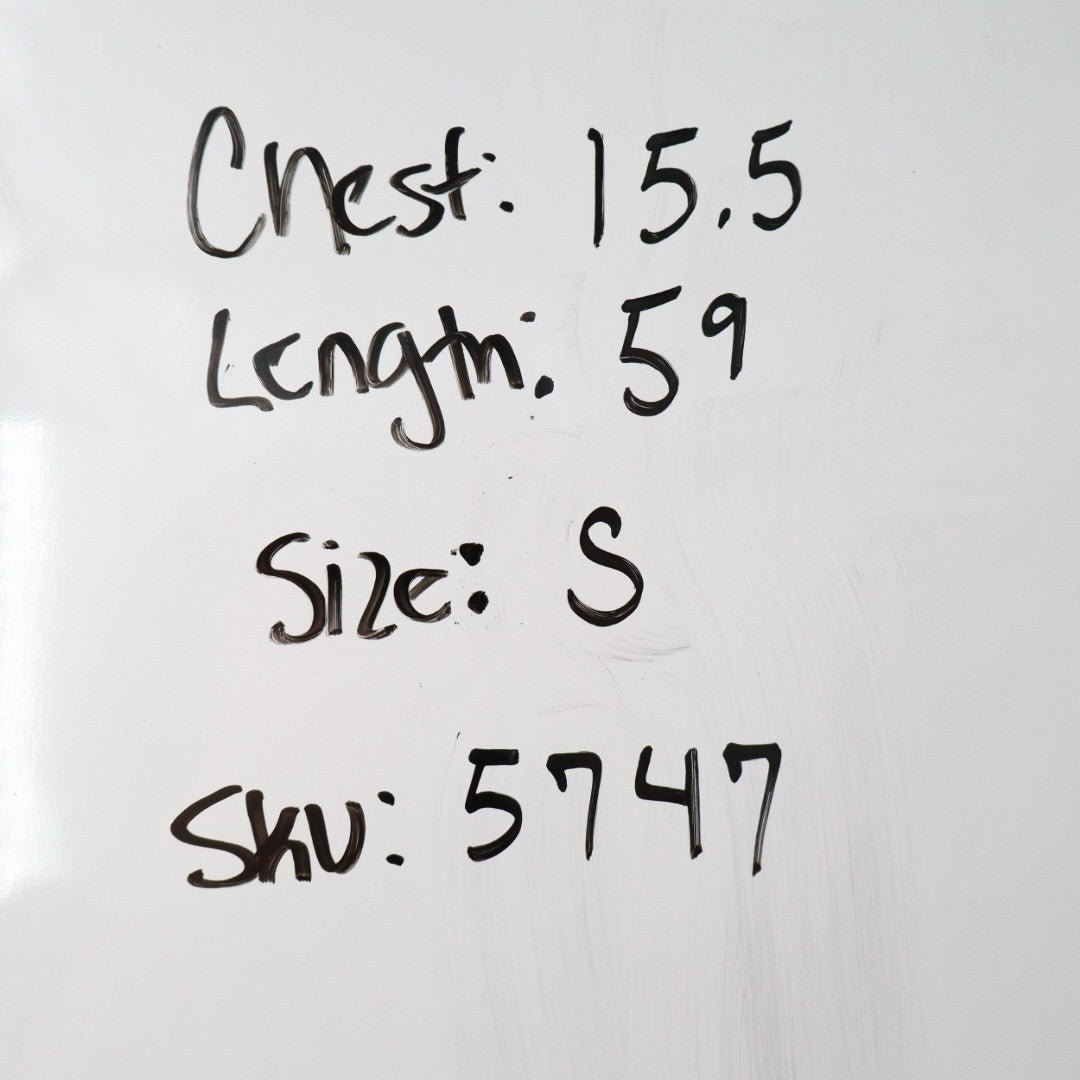 Chest: 15.5
Length: 59
Size: S
Sku: 5747